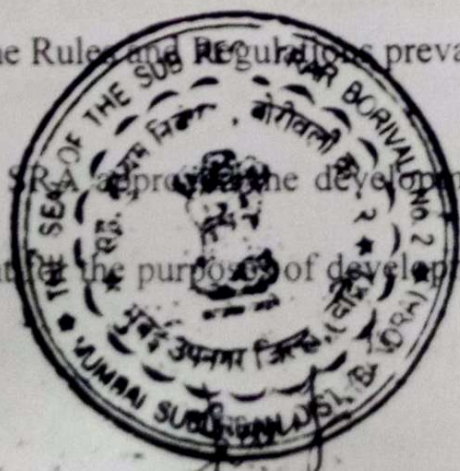 he Rules and Regulations preva
SRA approve the developm
for the purposes of develop
THE SEAL OF THE SUB REG RAR BORIVALI No. 2
MUMBAI SUBURBAN DIST. (BANDRA)
सह. दुय्यम निबं , बोरीवली क्र. २
मुंबई उपनगर जिल्हा (बांद्रा)